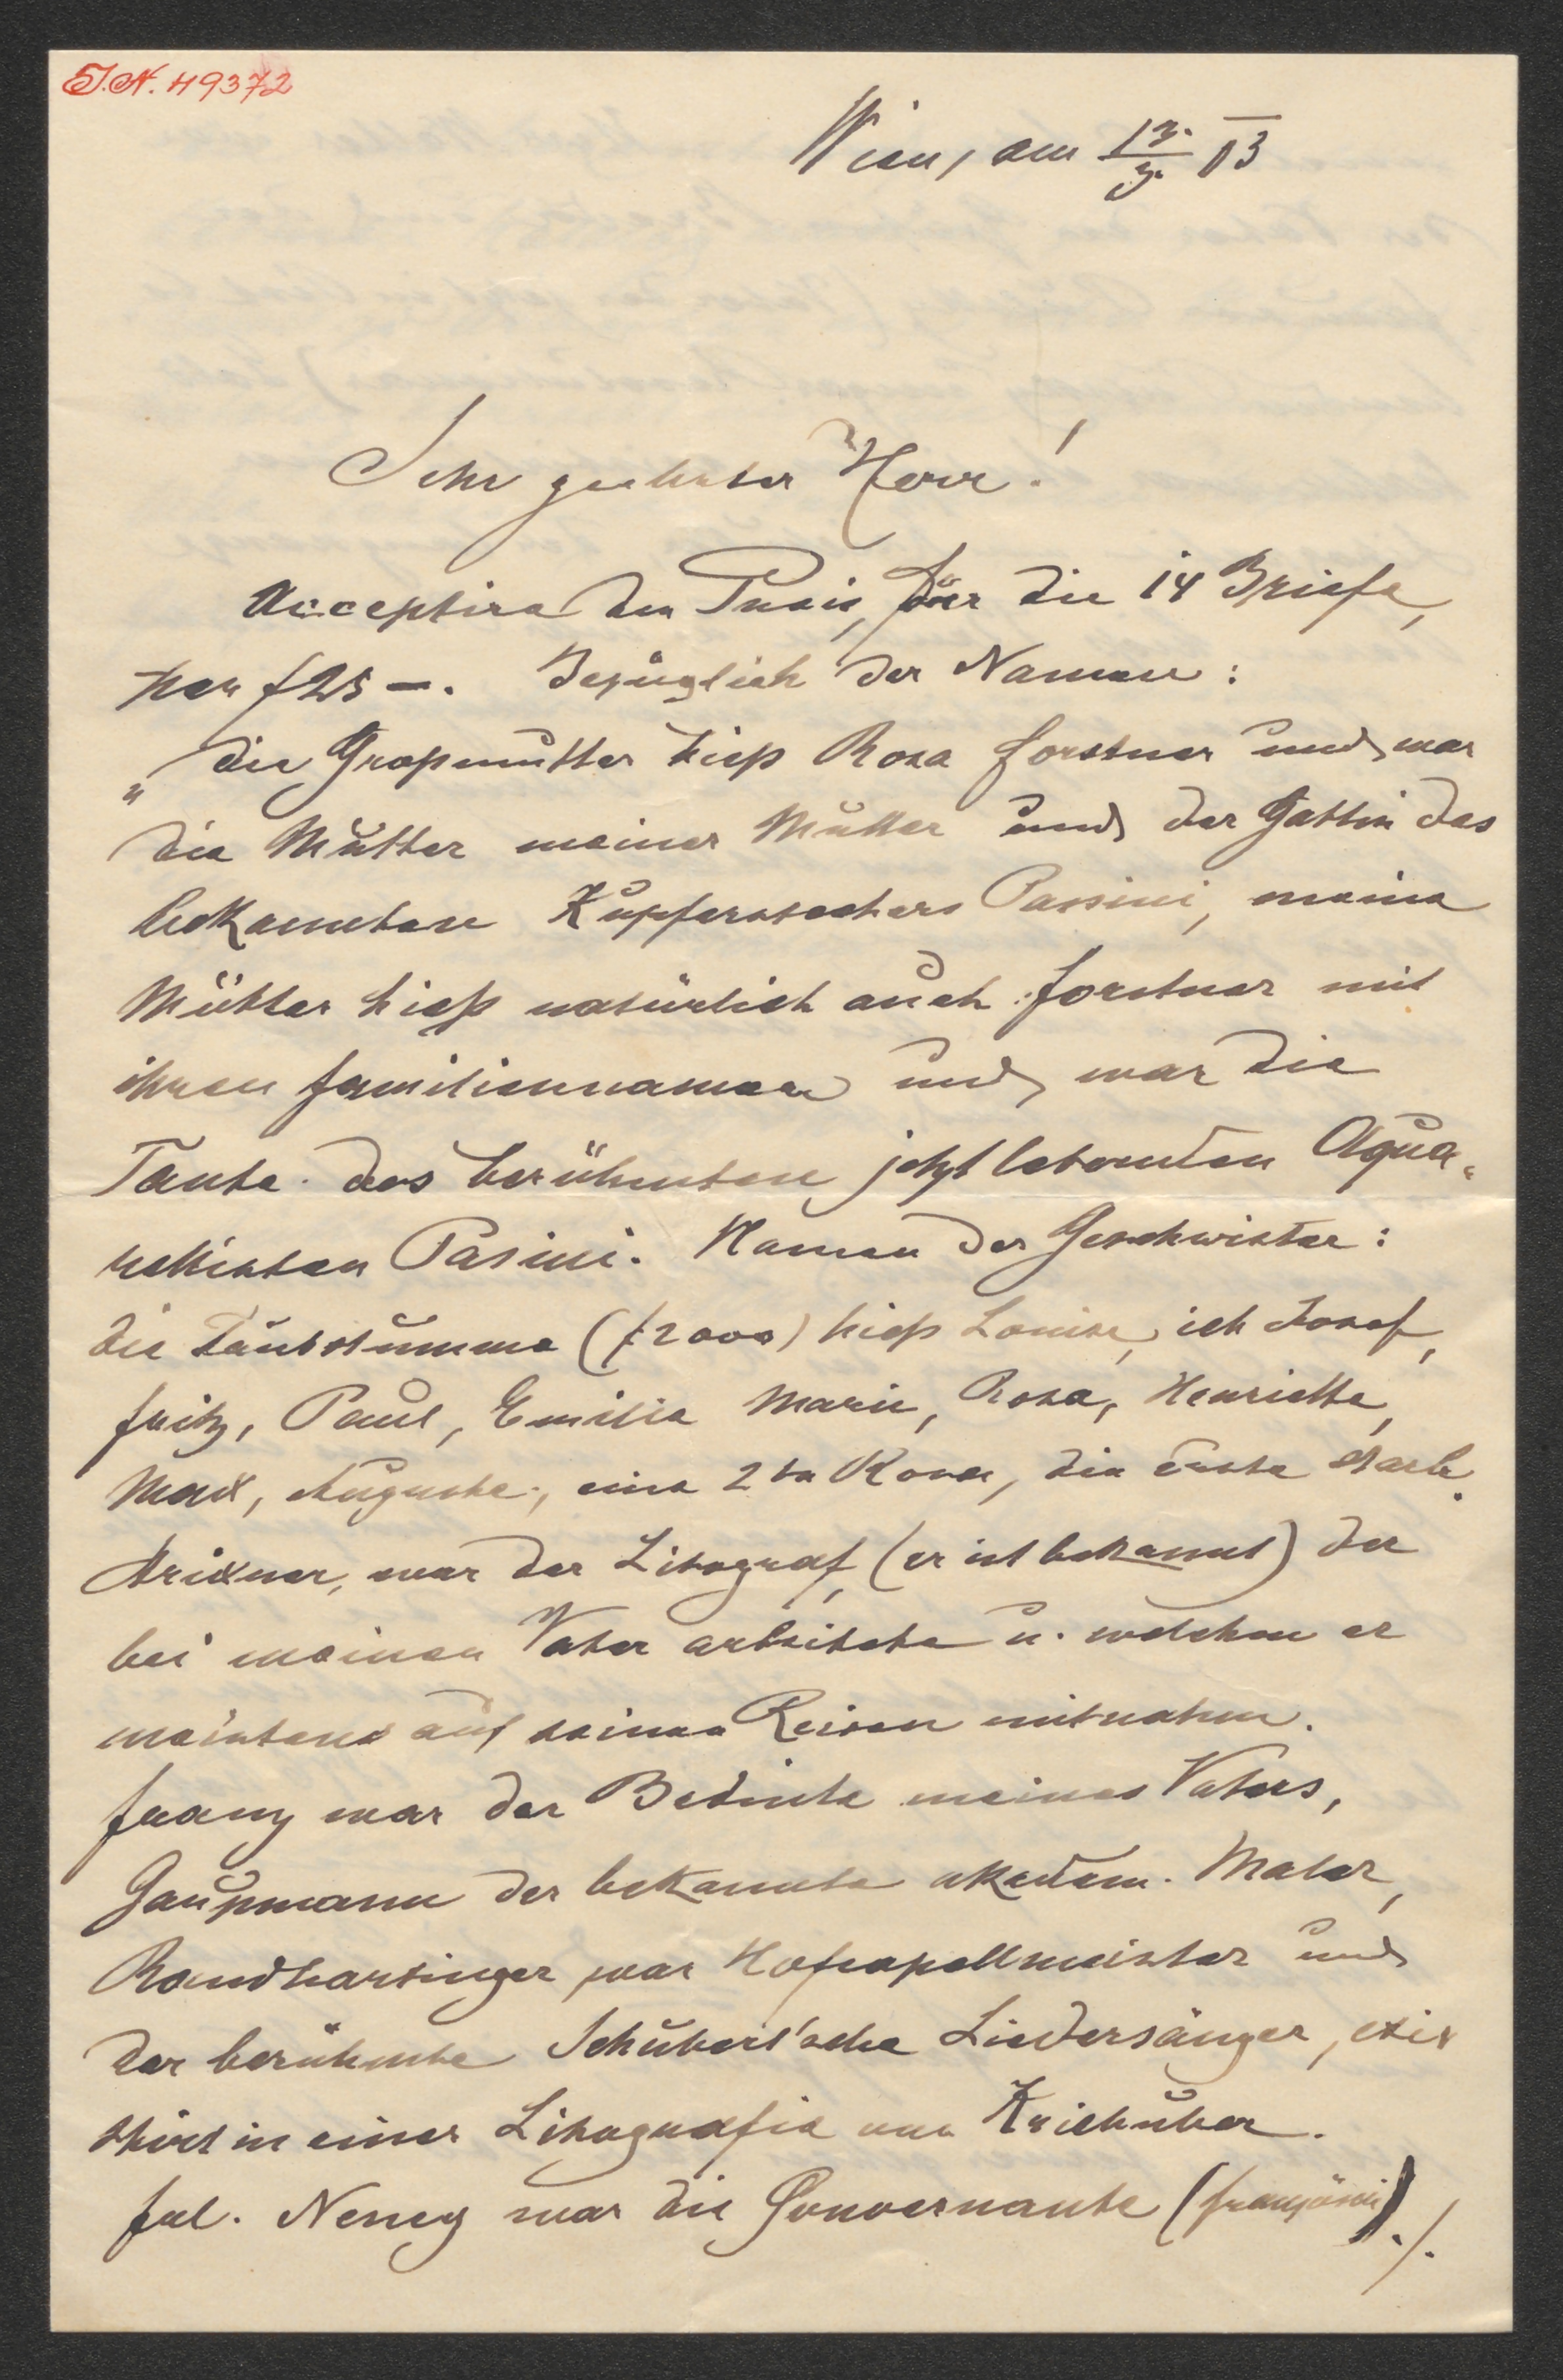 I.N. 49372
Wien, am 13./3. 03
Sehr geehrter Herr!
Acceptire den Preis, für die 14 Briefe,
per f 25 –. Bezüglich der Namen:
„die Großmutter hieß Rosa Forstner und war
die Mutter meiner Mutter und der Gattin des
bekannten Kupferstechers Passini, meine
Mutter hieß natürlich auch Forstner mit
ihren Familiennamen und war die
Tante des berühmten jetzt lebenden Aqua-
rellisten Pasini. Namen der Geschwister:
die Taubstumme (f 2000) hieß Louise, ich Josef,
Fritz, Paul, Emilie Marie, Rosa, Henriette,
Max, Auguste, eine 2te Rosa, die erste starb.
war der Litograf (er ist bekannt) der
bei meinen Vater arbeitete u. welchen er
meistens auf seinen Reisen mitnahm.
Franz war der Bediente meines Vaters,
Gaupmann der bekannte akadem. Maler,
Randhartinger war Hofcapellmeister und
der berühmte Schubert'sche Liedersänger, exis
stirt in einer Litografie von Kriehuber.
Frl. Neney war die Gouvernante (französin) ./.